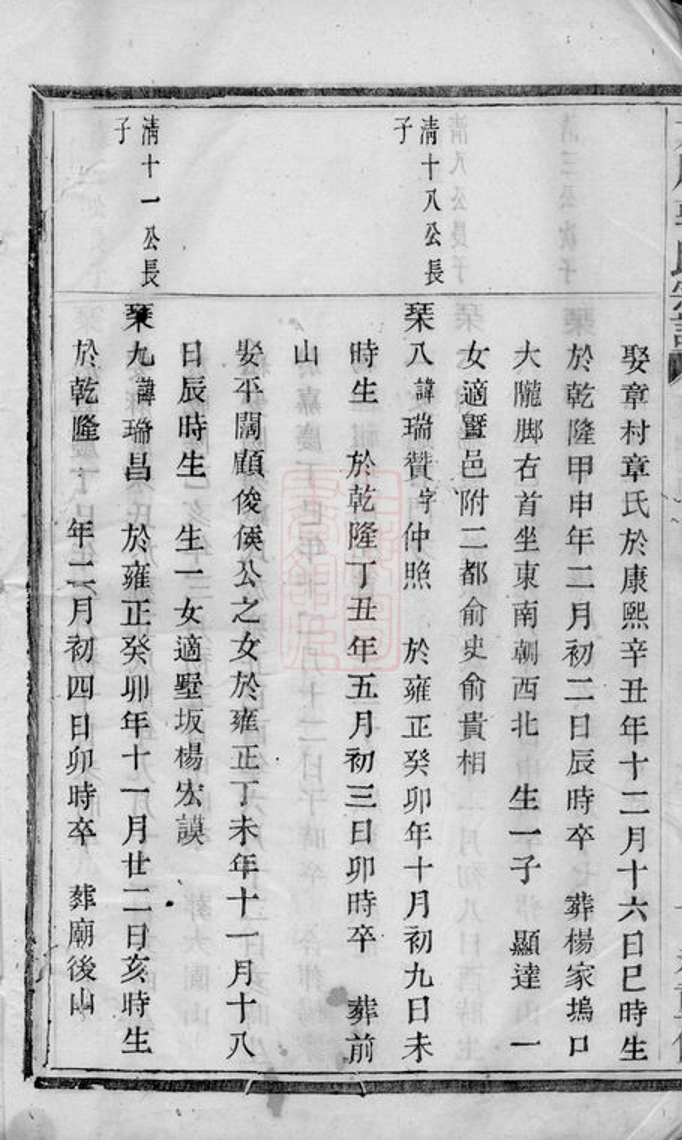 娶章村章氏於康熙辛丑年十二月十六日巳時生
於乾隆甲申年二月初二日辰時卒　葬楊家塢口
大隴脚右首坐東南朝西北　生一子　顯達　一
女適暨邑附二都俞史俞貴相
清十八公長
子
琹八諱瑞贊字仲照　於雍正癸卯年十月初九日未
時生　於乾隆丁丑年五月初三日卯時卒　葬前
山
娶平闊顧俊侯公之女於雍正丁未年十一月十八
日辰時生　生一女適墅坂楊宏謨
清十一公長
子
琹九諱瑞昌　於雍正癸卯年十一月廿二日亥時生
於乾隆　年二月初四日卯時卒　葬廟後山